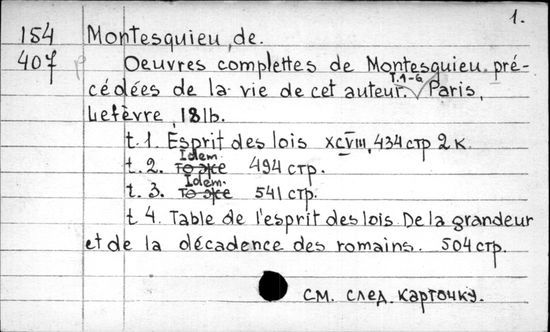 1.
154 Montesquieu, de.
407 Oeuvres complettes de Montesquieu pré-
cédées de la vie de cet auteur. T. 1-6 Paris,
Lefèvre, 1816.
t. 1. Esprit des lois XCVIII, 434 стр 2 к.
t. 2. Idem. то же 494 стр.
t. 3. Idem. то же 541 стр.
t 4. Table de l'esprit des lois De la grandeur
et de la décadence des romains. 504 стр.
см. след. карточку.